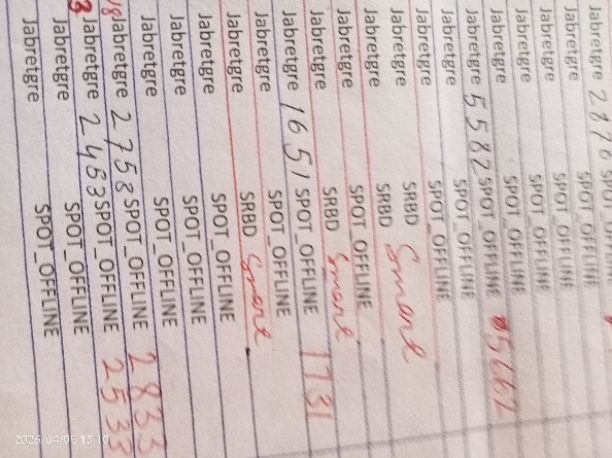 Jabretgre
Jabretgre SPOT_OFFLINE
Jabretgre SPOT_OFFLINE
Jabretgre SPOT_OFFLINE
Jabretgre SPOT_OFFLINE
Jabretgre 5582 SPOT_OFFLINE 5662
Jabretgre SPOT_OFFLINE
Jabretgre SPOT_OFFLINE
Jabretgre SRBD Smart
Jabretgre SRBD
Jabretgre SPOT_OFFLINE
Jabretgre SRBD Smart
Jabretgre 1651 SPOT_OFFLINE 1731
Jabretgre SPOT_OFFLINE
Jabretgre SRBD Smart
Jabretgre SPOT_OFFLINE
Jabretgre SPOT_OFFLINE
Jabretgre SPOT_OFFLINE
Jabretgre 2758 SPOT_OFFLINE 2833
Jabretgre 2453 SPOT_OFFLINE 2533
Jabretgre SPOT_OFFLINE
Jabretgre SPOT_OFFLINE